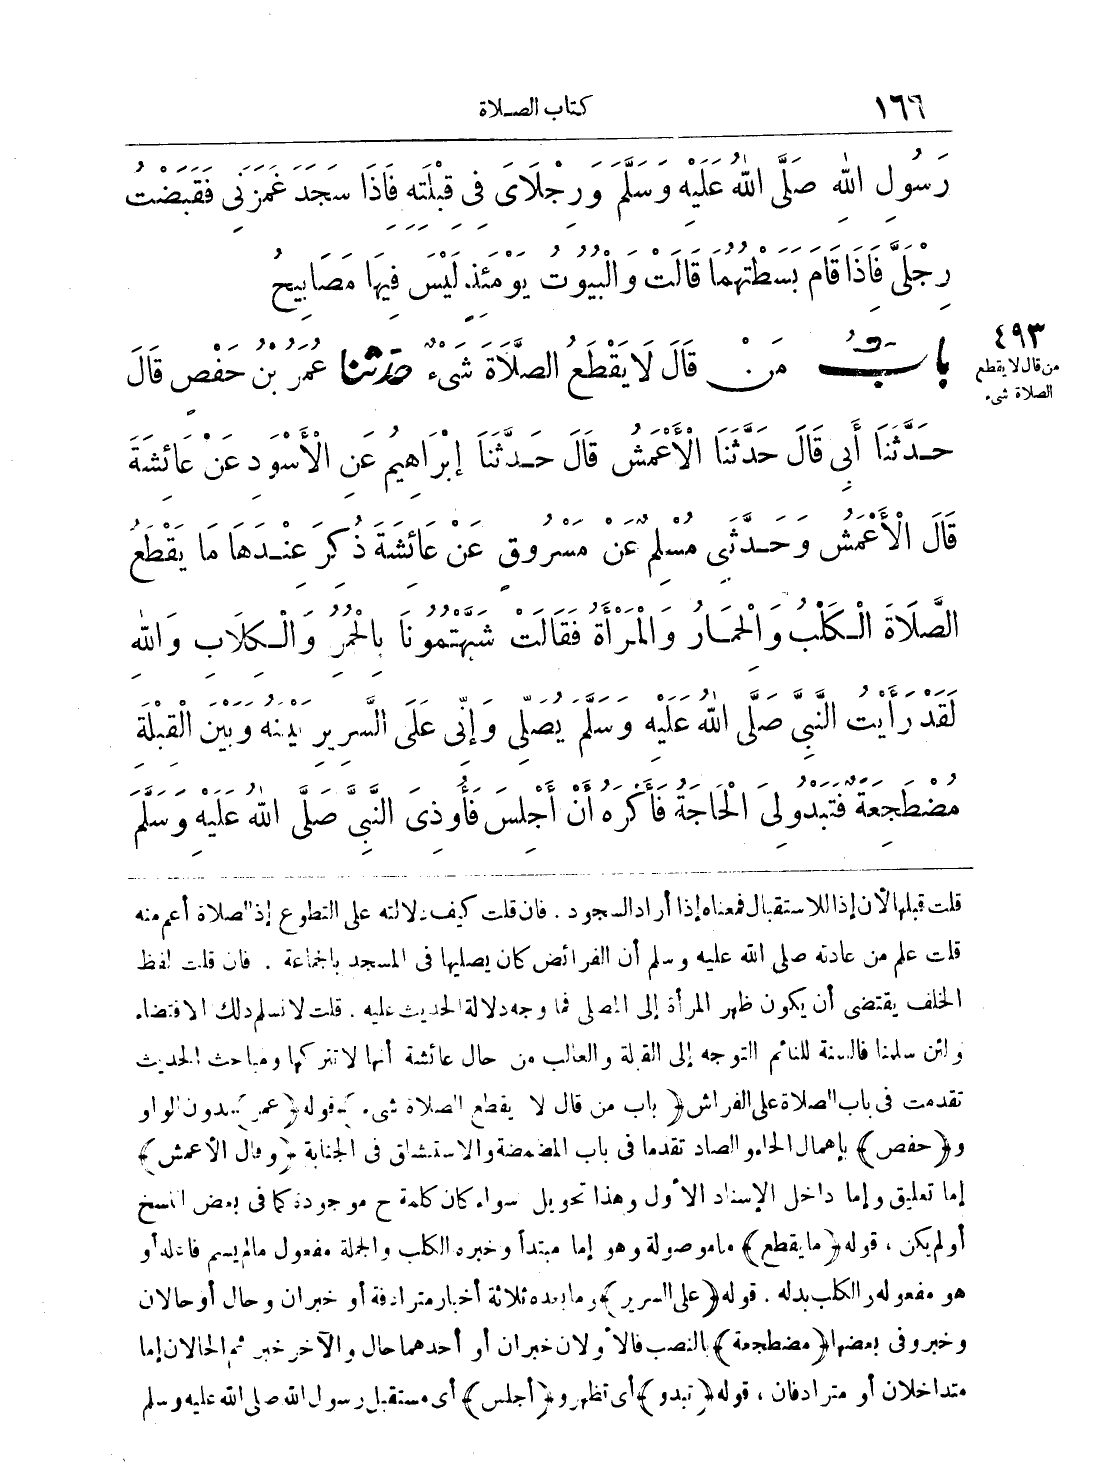 ١٦٦ كتاب الصلاة
رَسُولِ اللهِ صَلَّى اللهُ عَلَيْهِ وَسَلَّمَ وَرِجْلَاىَ فِى قِبْلَتِهِ فَاِذَا سَجَدَ غَمَزَنِى فَقَبَضْتُ
رِجْلَىَّ فَاِذَا قَامَ بَسَطْتُهُمَا قَالَتْ وَالْبُيُوتُ يَوْمَئِذٍ لَيْسَ فِيهَا مَصَابِيحُ
٤٩٣
من قال لا يقطع
الصلاة شىء
بَابُ مَنْ قَالَ لَا يَقْطَعُ الصَّلَاةَ شَىْءٌ حدثنا عُمَرُ بْنُ حَفْصٍ قَالَ
حَدَّثَنَا أَبِى قَالَ حَدَّثَنَا الْأَعْمَشُ قَالَ حَدَّثَنَا إِبْرَاهِيمُ عَنِ الْأَسْوَدِ عَنْ عَائِشَةَ
قَالَ الْأَعْمَشُ وَحَدَّثَنِى مُسْلِمٌ عَنْ مَسْرُوقٍ عَنْ عَائِشَةَ ذُكِرَ عِنْدَهَا مَا يَقْطَعُ
الصَّلَاةَ الْكَلْبُ وَالْحِمَارُ وَالْمَرْأَةُ فَقَالَتْ شَبَّهْتُمُونَا بِالْحُمُرِ وَالْكِلَابِ وَاللهِ
لَقَدْ رَأَيْتُ النَّبِىَّ صَلَّى اللهُ عَلَيْهِ وَسَلَّمَ يُصَلِّى وَإِنِّى عَلَى السَّرِيرِ بَيْنَهُ وَبَيْنَ الْقِبْلَةِ
مُضْطَجِعَةٌ فَتَبْدُو لِىَ الْحَاجَةُ فَأَكْرَهُ أَنْ أَجْلِسَ فَأُوذِىَ النَّبِىَّ صَلَّى اللهُ عَلَيْهِ وَسَلَّمَ
قلت قبلها لأن إذا للاستقبال فمعناه إذا أراد السجود . فان قلت كيف دلالته على التطوع إذ الصلاة أعم منه
قلت علم من عادته صلى الله عليه وسلم أن الفرائض كان يصليها فى المسجد بالجماعة . فان قلت لفظ
الخلف يقتضى أن يكون ظهر المرأة إلى المصلى فما وجه دلالة الحديث عليه . قلت لا نسلم ذلك الاقتضاء
ولئن سلمنا فالسنة للنائم التوجه إلى القبلة والغالب من حال عائشة أنها لا تتركها ومباحث الحديث
تقدمت فى باب الصلاة على الفراش ﴿باب من قال لا يقطع الصلاة شىء﴾ قوله ﴿عمر﴾ بدون الواو
و﴿حفص﴾ بإهمال الحاء والصاد تقدما فى باب المضمضة والاستنشاق فى الجنابة ﴿وقال الأعمش﴾
إما تعليق وإما داخل الإسناد الأول وهذا تحويل سواء كان كلمة ح موجودة كما فى بعض النسخ
أو لم يكن ، قوله ﴿ما يقطع﴾ ما موصولة وهو إما مبتدأ وخبره الكلب والجملة مفعول ما لم يسم فاعله أو
هو مفعوله والكلب بدله . قوله ﴿على السرير﴾ وما بعده ثلاثة أخبار مترادفة أو خبران وحال أو حالان
وخبر وفى بعضها ﴿مضطجعة﴾ بالنصب فالأولان خبران أو أحدهما حال والآخر خبر ثم الحالان إما
متداخلان أو مترادفان ، قوله ﴿تبدو﴾ أى تظهر و﴿أجلس﴾ أى مستقبل رسول الله صلى الله عليه وسلم